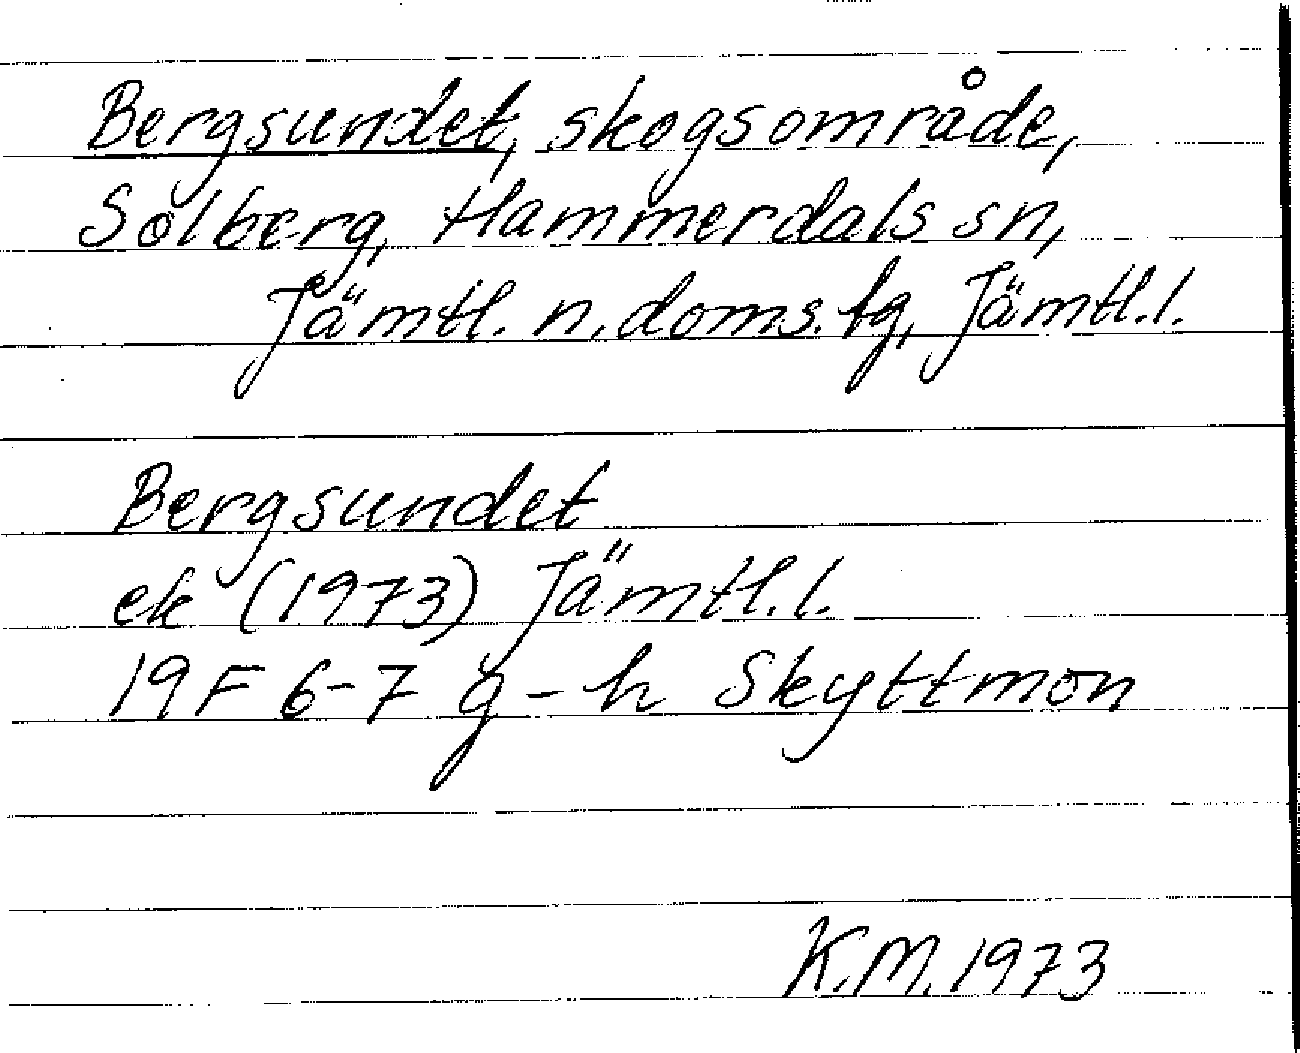 Bergsundet, skogsområde,
Solberg, Hammerdals sn,
Jämtl. n. doms. fg, Jämtl.l.
Bergsundet
ek (1973) Jämtl.l.
19F 6-7 g-h Skyttmon
K.M. 1973